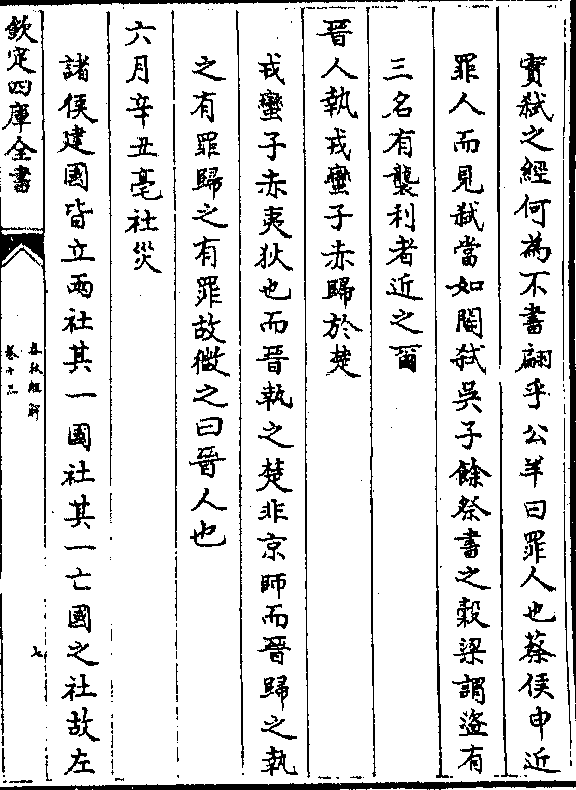 實弑之經何為不書翩乎公羊曰罪人也蔡侯申近
罪人而見弑當如閽弑吳子餘祭書之榖梁謂盜有
三名有襲利者近之爾
晉人執戎蠻子赤歸於楚
戎蠻子赤夷狄也而晉執之楚非京師而晉歸之執
之有罪歸之有罪故微之曰晉人也
六月辛丑亳社災
諸侯建國皆立兩社其一國社其一亡國之社故左
欽定四庫全書
春秋經解
卷十二
七